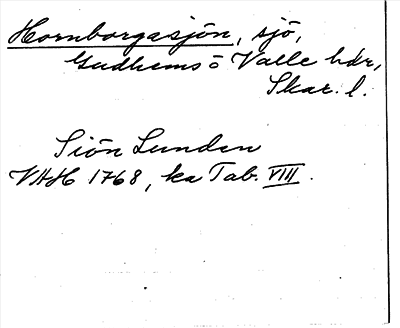 Hornborgasjön, sjö,
Gudhems o Valle hdr,
Skar. l.
Siön Lunden
VAH 1768, ka Tab. VIII.